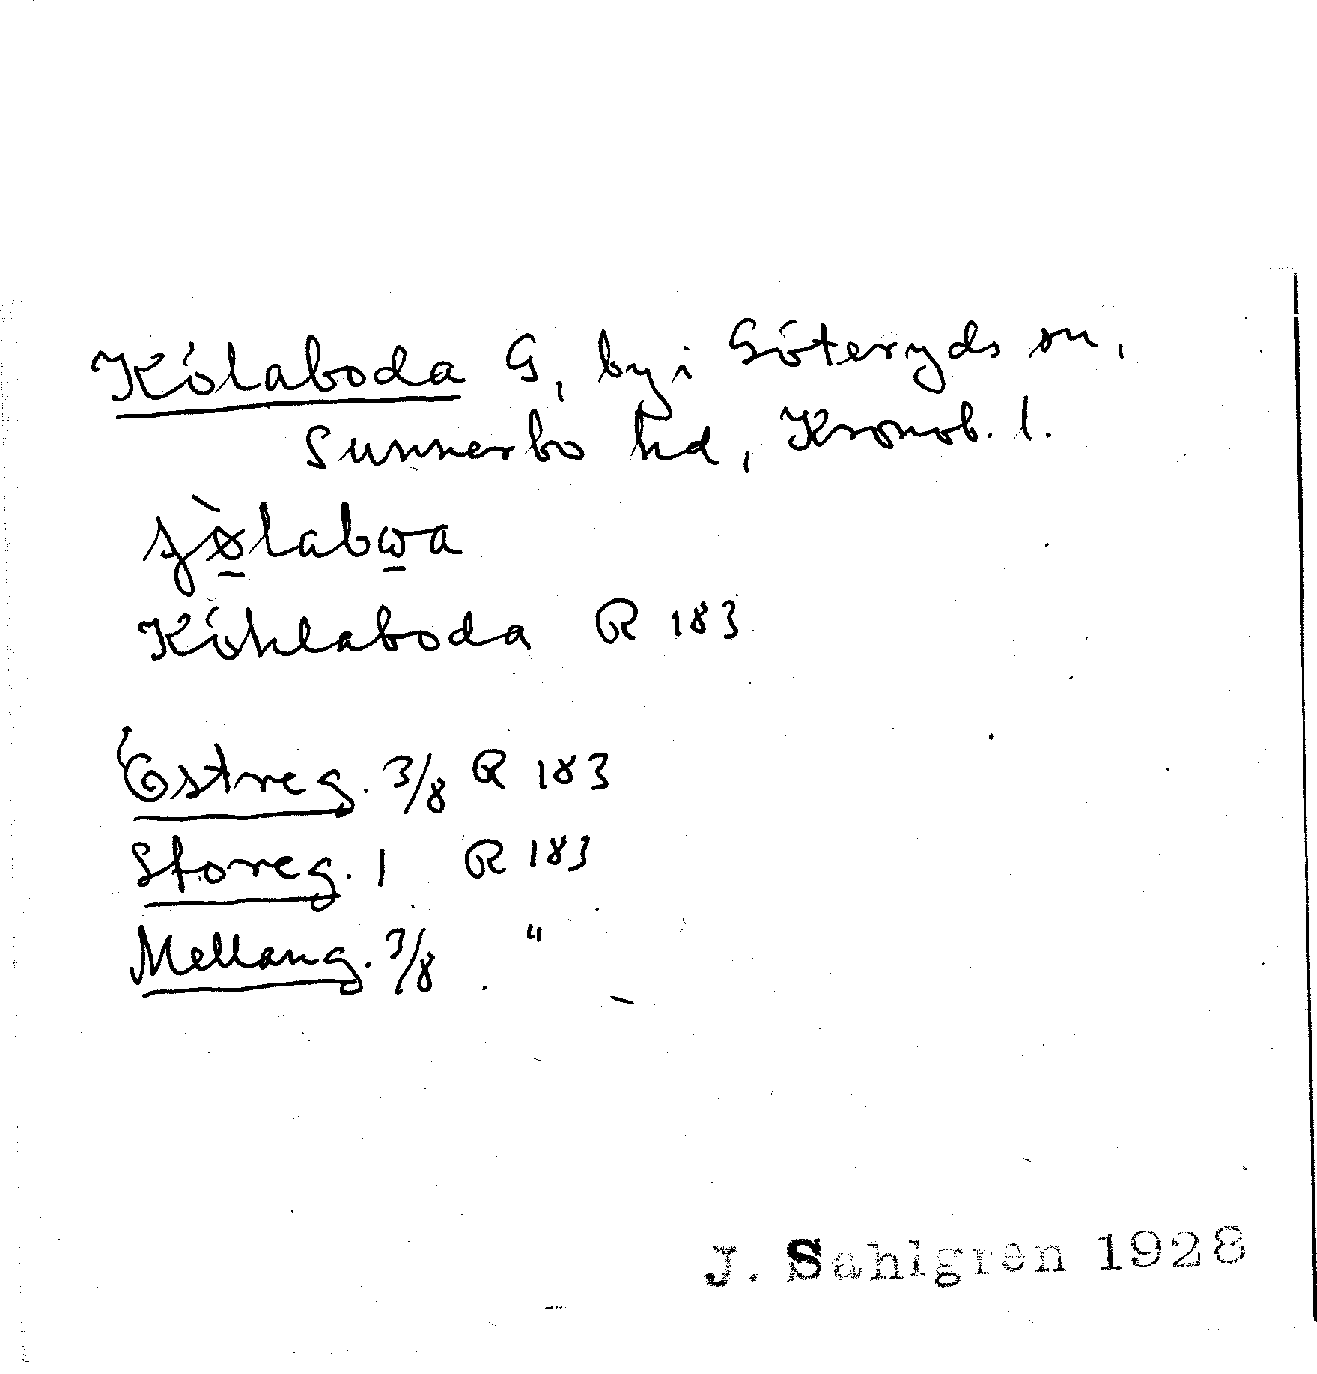 Kölaboda G, by i Göteryds sn,
Sunnerbo hd, Kronob. l.
Köhlaboda R 183
Östreg. 3/8 R 183
Storeg. 1 R 183
Mellang. 3/8 "
J. Sahlgren 1928